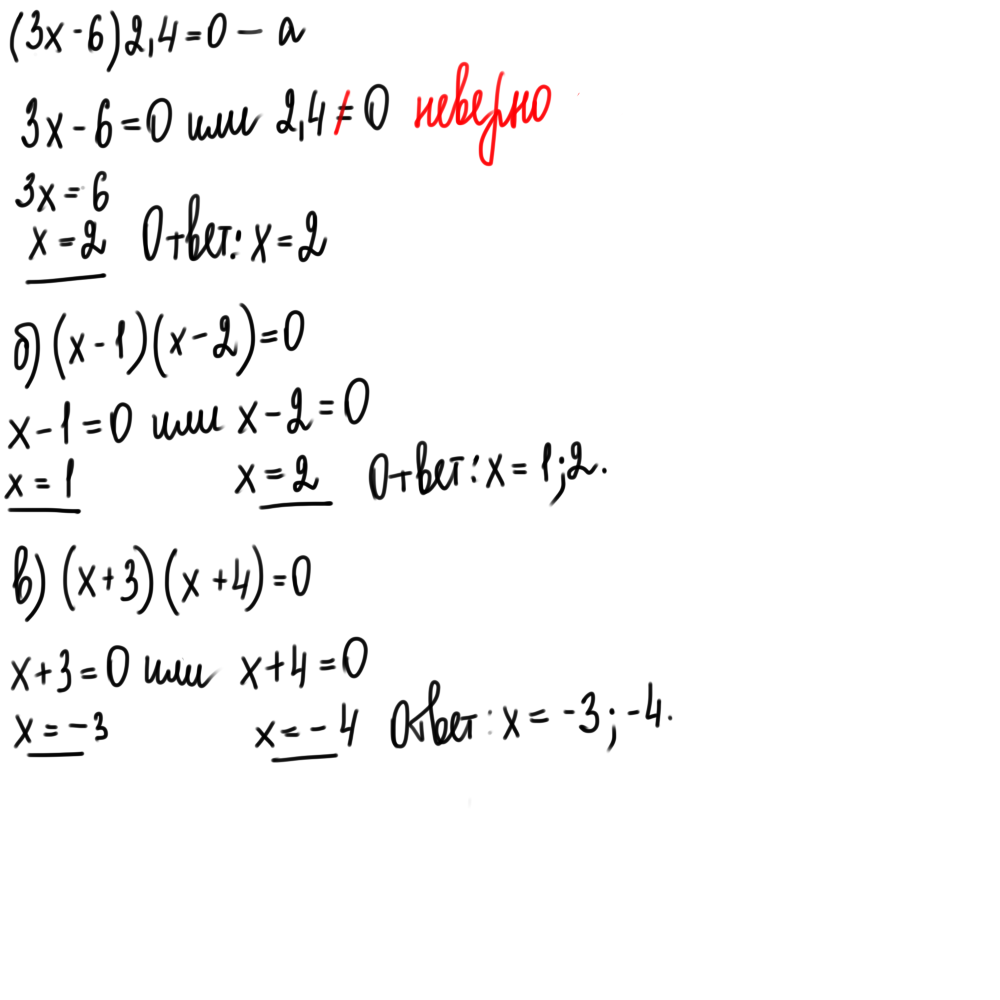 (3x-6)2,4=0 — а
3x-6=0 или 2,4≠0 неверно
3x=6
x=2 Ответ: x=2
б) (x-1)(x-2)=0
x-1=0 или x-2=0
x=1 x=2 Ответ: x=1;2.
в) (x+3)(x+4)=0
x+3=0 или x+4=0
x=-3 x=-4 Ответ: x=-3;-4.